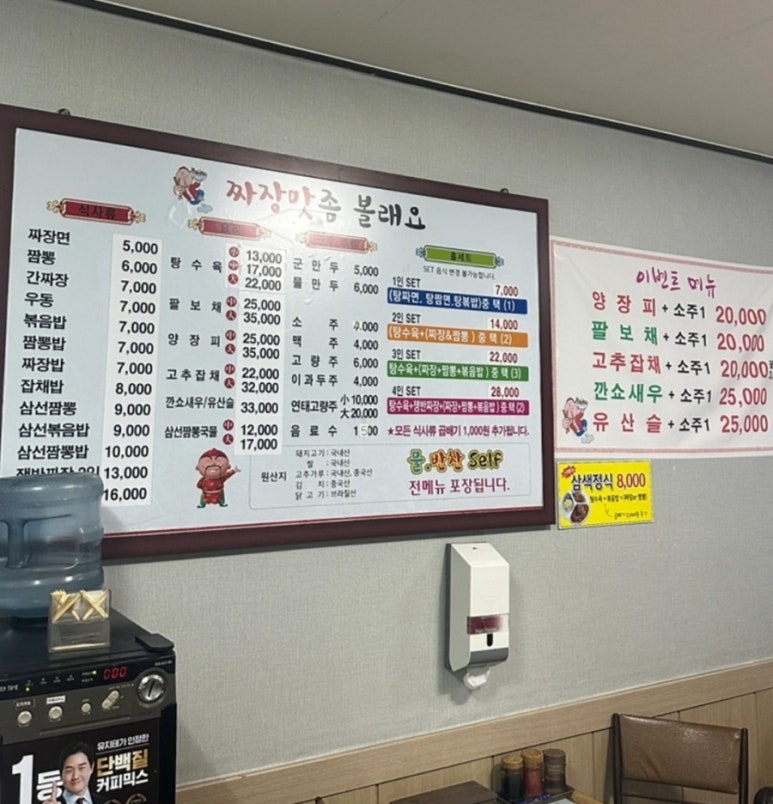 짜장맛좀 볼래요
식사류
짜장면 5,000
짬뽕 6,000
간짜장 7,000
우동 7,000
볶음밥 7,000
짬뽕밥 7,000
짜장밥 7,000
잡채밥 8,000
삼선짬뽕 9,000
삼선볶음밥 9,000
삼선짬뽕밥 10,000
쟁반짜장 2인 13,000
16,000
탕수육 小 13,000
中 17,000
大 22,000
팔보채 中 25,000
大 35,000
양장피 中 25,000
大 35,000
고추잡채 中 22,000
大 32,000
깐쇼새우/유산슬 33,000
삼선짬뽕국물 中 12,000
大 17,000
군만두 5,000
물만두 6,000
소주 4,000
맥주 4,000
고량주 6,000
이과두주 4,000
연태고량주 小 10,000
大 20,000
음료수 1,500
홀세트
SET 음식 변경 불가능합니다.
1인 SET 7,000
(탕짜면, 탕짬면,탕볶밥)중 택 (1)
2인 SET 14,000
(탕수육+(짜장&짬뽕) 중 택 (2)
3인 SET 22,000
탕수육+(짜장+짬뽕+볶음밥) 중 택 (3)
4인 SET 28,000
탕수육+쟁반짜장+(짜장+짬뽕+볶음밥) 중 택 (2)
★모든 식사류 곱빼기 1,000원 추가됩니다.
원산지
돼지고기 : 국내산
쌀 : 국내산
고추가루 : 국내산, 중국산
김치 : 중국산
닭고기 : 브라질산
물.반찬 Self
전메뉴 포장됩니다.
이벤트 메뉴
양장피 + 소주1 20,000
팔보채 + 소주1 20,000
고추잡채 + 소주1 20,000원
깐쇼새우 + 소주1 25,000
유산슬 + 소주1 25,000
삼색정식 8,000
탕수육 + 볶음밥 + (짜장or 짬뽕)
000
유지태가 인정한
1등
단백질
커피믹스